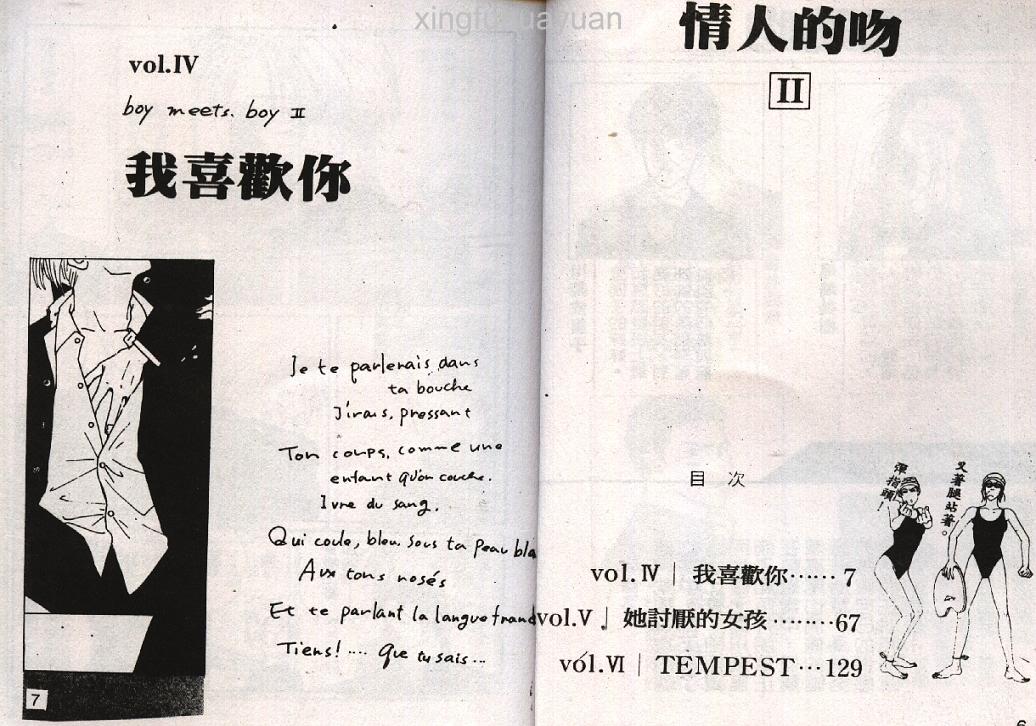 xingfuhuayuan
情人的吻
II
目次
vol.Ⅳ｜我喜歡你……7
vol.Ⅴ｜她討厭的女孩………67
vol.Ⅵ｜TEMPEST…129
彈指頭！
叉著腿站著。
6
vol.IV
boy meets. boy II
我喜歡你
Je te parlerais dans
ta bouche
J'irais, pressant
Ton corps, comme une
enfant qu'on couche.
Ivre du sang.
Qui coule, bleu. sous ta peau bla
Aux tons rosés
Et te parlant la langue franc
Tiens! .... Que tu sais...
7